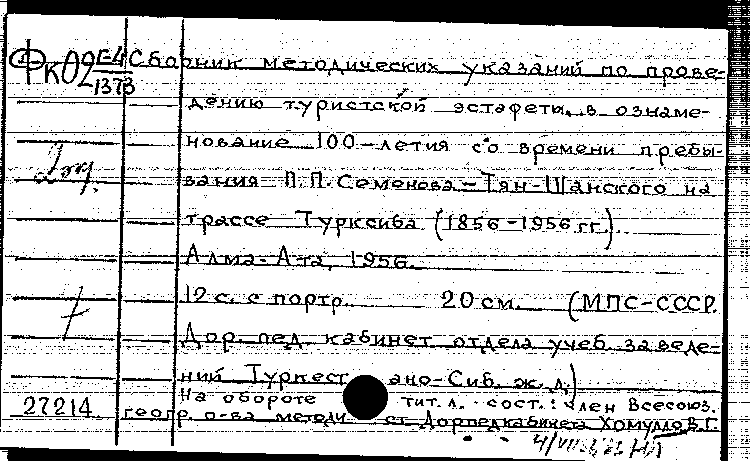 Фк 02 Е-4/1373 Сборник методических указаний по прове-
дению туристской эстафеты, в ознаме-
нование 100-летия со времени пребы-
вания П.П. Семенова-Тян-Шанского на
трассе Турксиба (1856-1956 гг.).
Алма-Ата, 1956.
12 с. с портр. 20 см. (МПС-СССР.
Дор. пед. кабинет отдела учеб. заведе-
ний Туркест ано-Сиб. ж.д.)
На обороте тит. л. сост.: член Всесоюз.
27214 геогр. о-ва методи ст Дорпедкабинета Хомулло В.Г.